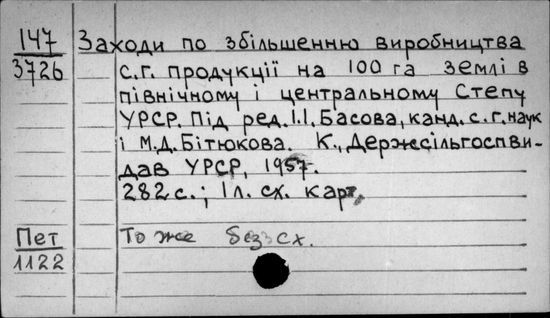 147 Заходи по збільшенню виробництва
3726 с.г. продукції на 100 га землі в
північному і центральному Степу
УРСР. Під ред. І.І. Басова, канд. с.г. наук
і М.Д. Бітюкова. К., Держсільгоспви-
дав УРСР, 1957.
282 с.; 1 л. сх. карт,
Пет То же без сх.
1122